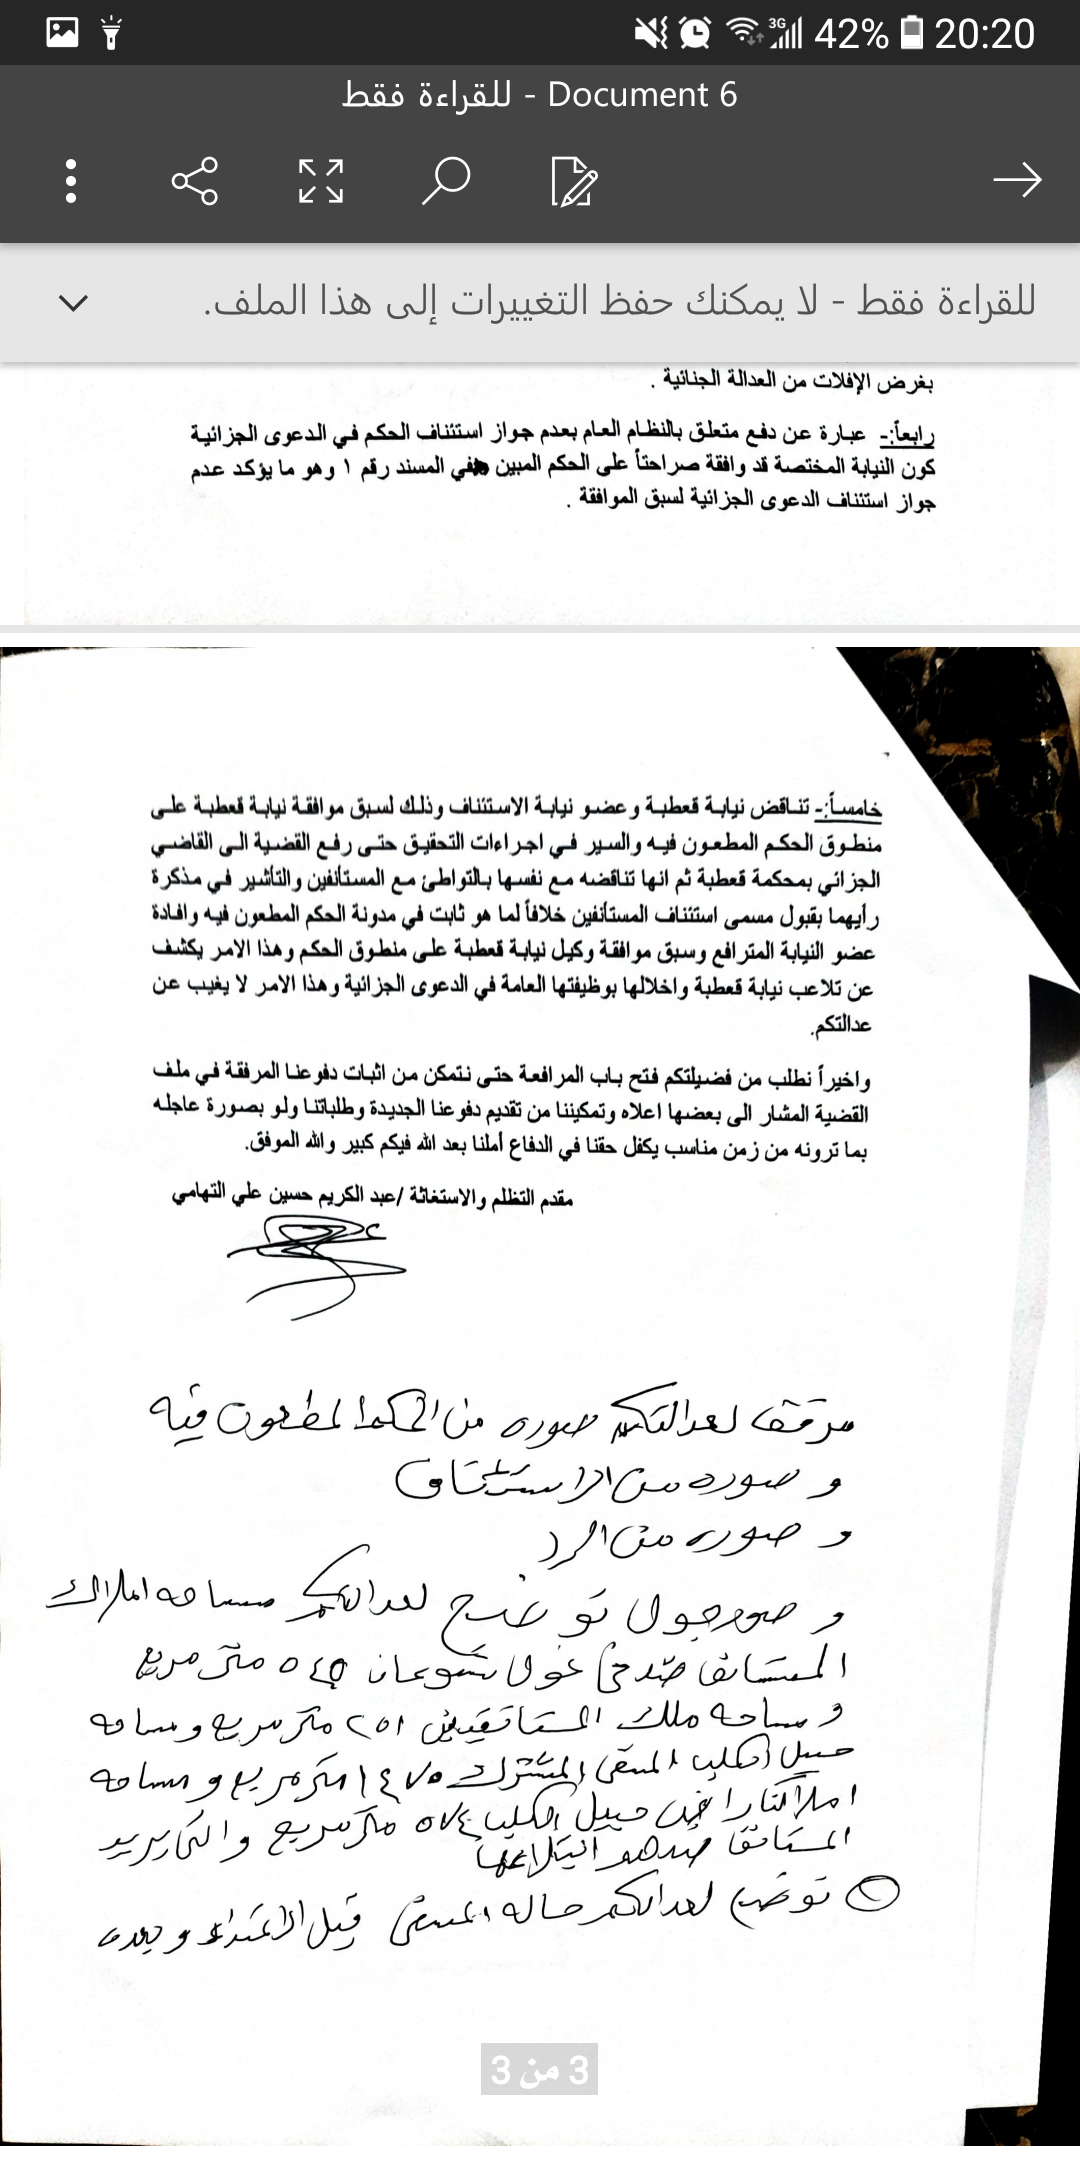 42% 20:20
3G
Document 6 - للقراءة فقط
للقراءة فقط - لا يمكنك حفظ التغييرات إلى هذا الملف.
بغرض الإفلات من العدالة الجنائية .
رابعاً:- عبارة عن دفع متعلق بالنظام العام بعدم جواز استئناف الحكم في الدعوى الجزائية
كون النيابة المختصة قد وافقة صراحتاً على الحكم المبين في المسند رقم ١ وهو ما يؤكد عدم
جواز استئناف الدعوى الجزائية لسبق الموافقة .
خامساً:- تناقض نيابة قعطبة وعضو نيابة الاستئناف وذلك لسبق موافقة نيابة قعطبة على
منطوق الحكم المطعون فيه والسير في اجراءات التحقيق حتى رفع القضية الى القاضي
الجزائي بمحكمة قعطبة ثم انها تناقضه مع نفسها بالتواطئ مع المستأنفين والتأشير في مذكرة
رأيهما بقبول مسمى استئناف المستأنفين خلافاً لما هو ثابت في مدونة الحكم المطعون فيه وافادة
عضو النيابة المترافع وسبق موافقة وكيل نيابة قعطبة على منطوق الحكم وهذا الامر يكشف
عن تلاعب نيابة قعطبة واخلالها بوظيفتها العامة في الدعوى الجزائية وهذا الامر لا يغيب عن
عدالتكم.
واخيراً نطلب من فضيلتكم فتح باب المرافعة حتى نتمكن من اثبات دفوعنا المرفقة في ملف
القضية المشار الى بعضها اعلاه وتمكيننا من تقديم دفوعنا الجديدة وطلباتنا ولو بصورة عاجله
بما ترونه من زمن مناسب يكفل حقنا في الدفاع أملنا بعد الله فيكم كبير والله الموفق.
مقدم التظلم والاستغاثة /عبد الكريم حسين علي التهامي
مرفق لعدالتكم صوره من الحكم المطعون فيه
و صوره من الاستئناف
و صوره من الرد
و جدول توضح لعدالتكم مساحه املاك
المستانف ٥٤٥ متر مربع
و مساحه ملك المستانفين ٢٥١ متر مربع ومساحه
المسقى المشترك ١٤٧٥ متر مربع ومساحه
املاكنا ٥٧٤ متر مربع والتي يريد
المستانف ابتلاعها
توضح لعدالتكم حاله المسقى قبل الاعتداء وبعده
3 من 3